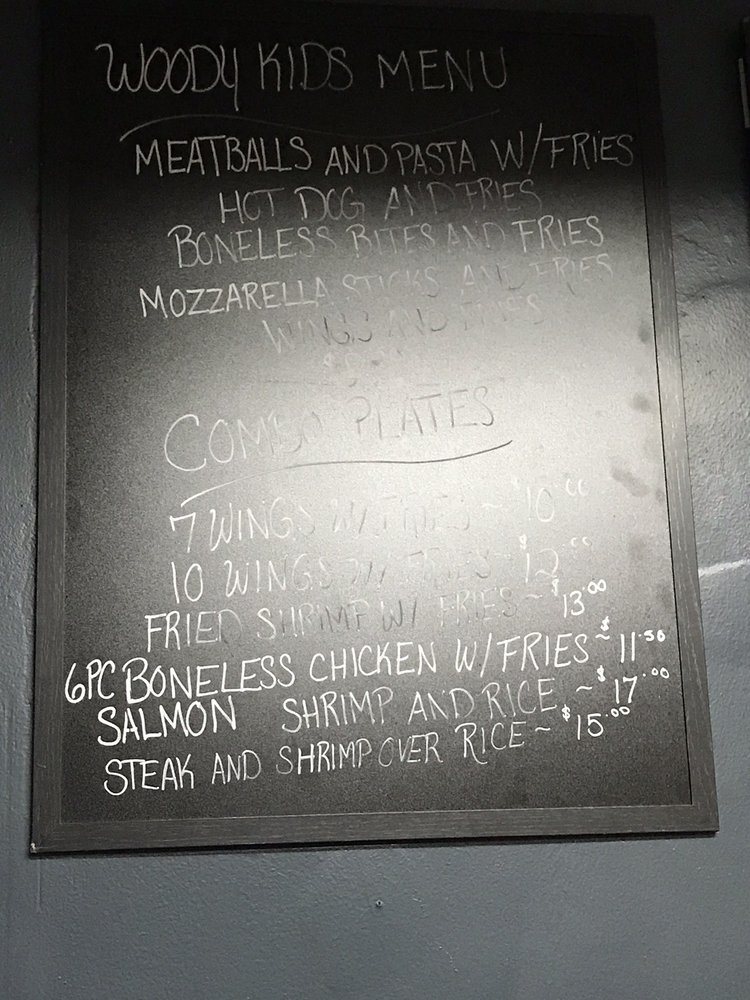 WOODY KIDS MENU
MEATBALLS AND PASTA W/FRIES
HOT DOG AND FRIES
BONELESS BITES AND FRIES
MOZZARELLA STICKS AND FRIES
WINGS AND FRIES
COMBO PLATES
7 WINGS W/ FRIES ~ $10.00
10 WINGS W/ FRIES ~ $12.00
FRIED SHRIMP W/ FRIES ~ $13.00
6PC BONELESS CHICKEN W/FRIES ~ $11.50
SALMON SHRIMP AND RICE ~ $17.00
STEAK AND SHRIMP OVER RICE ~ $15.00